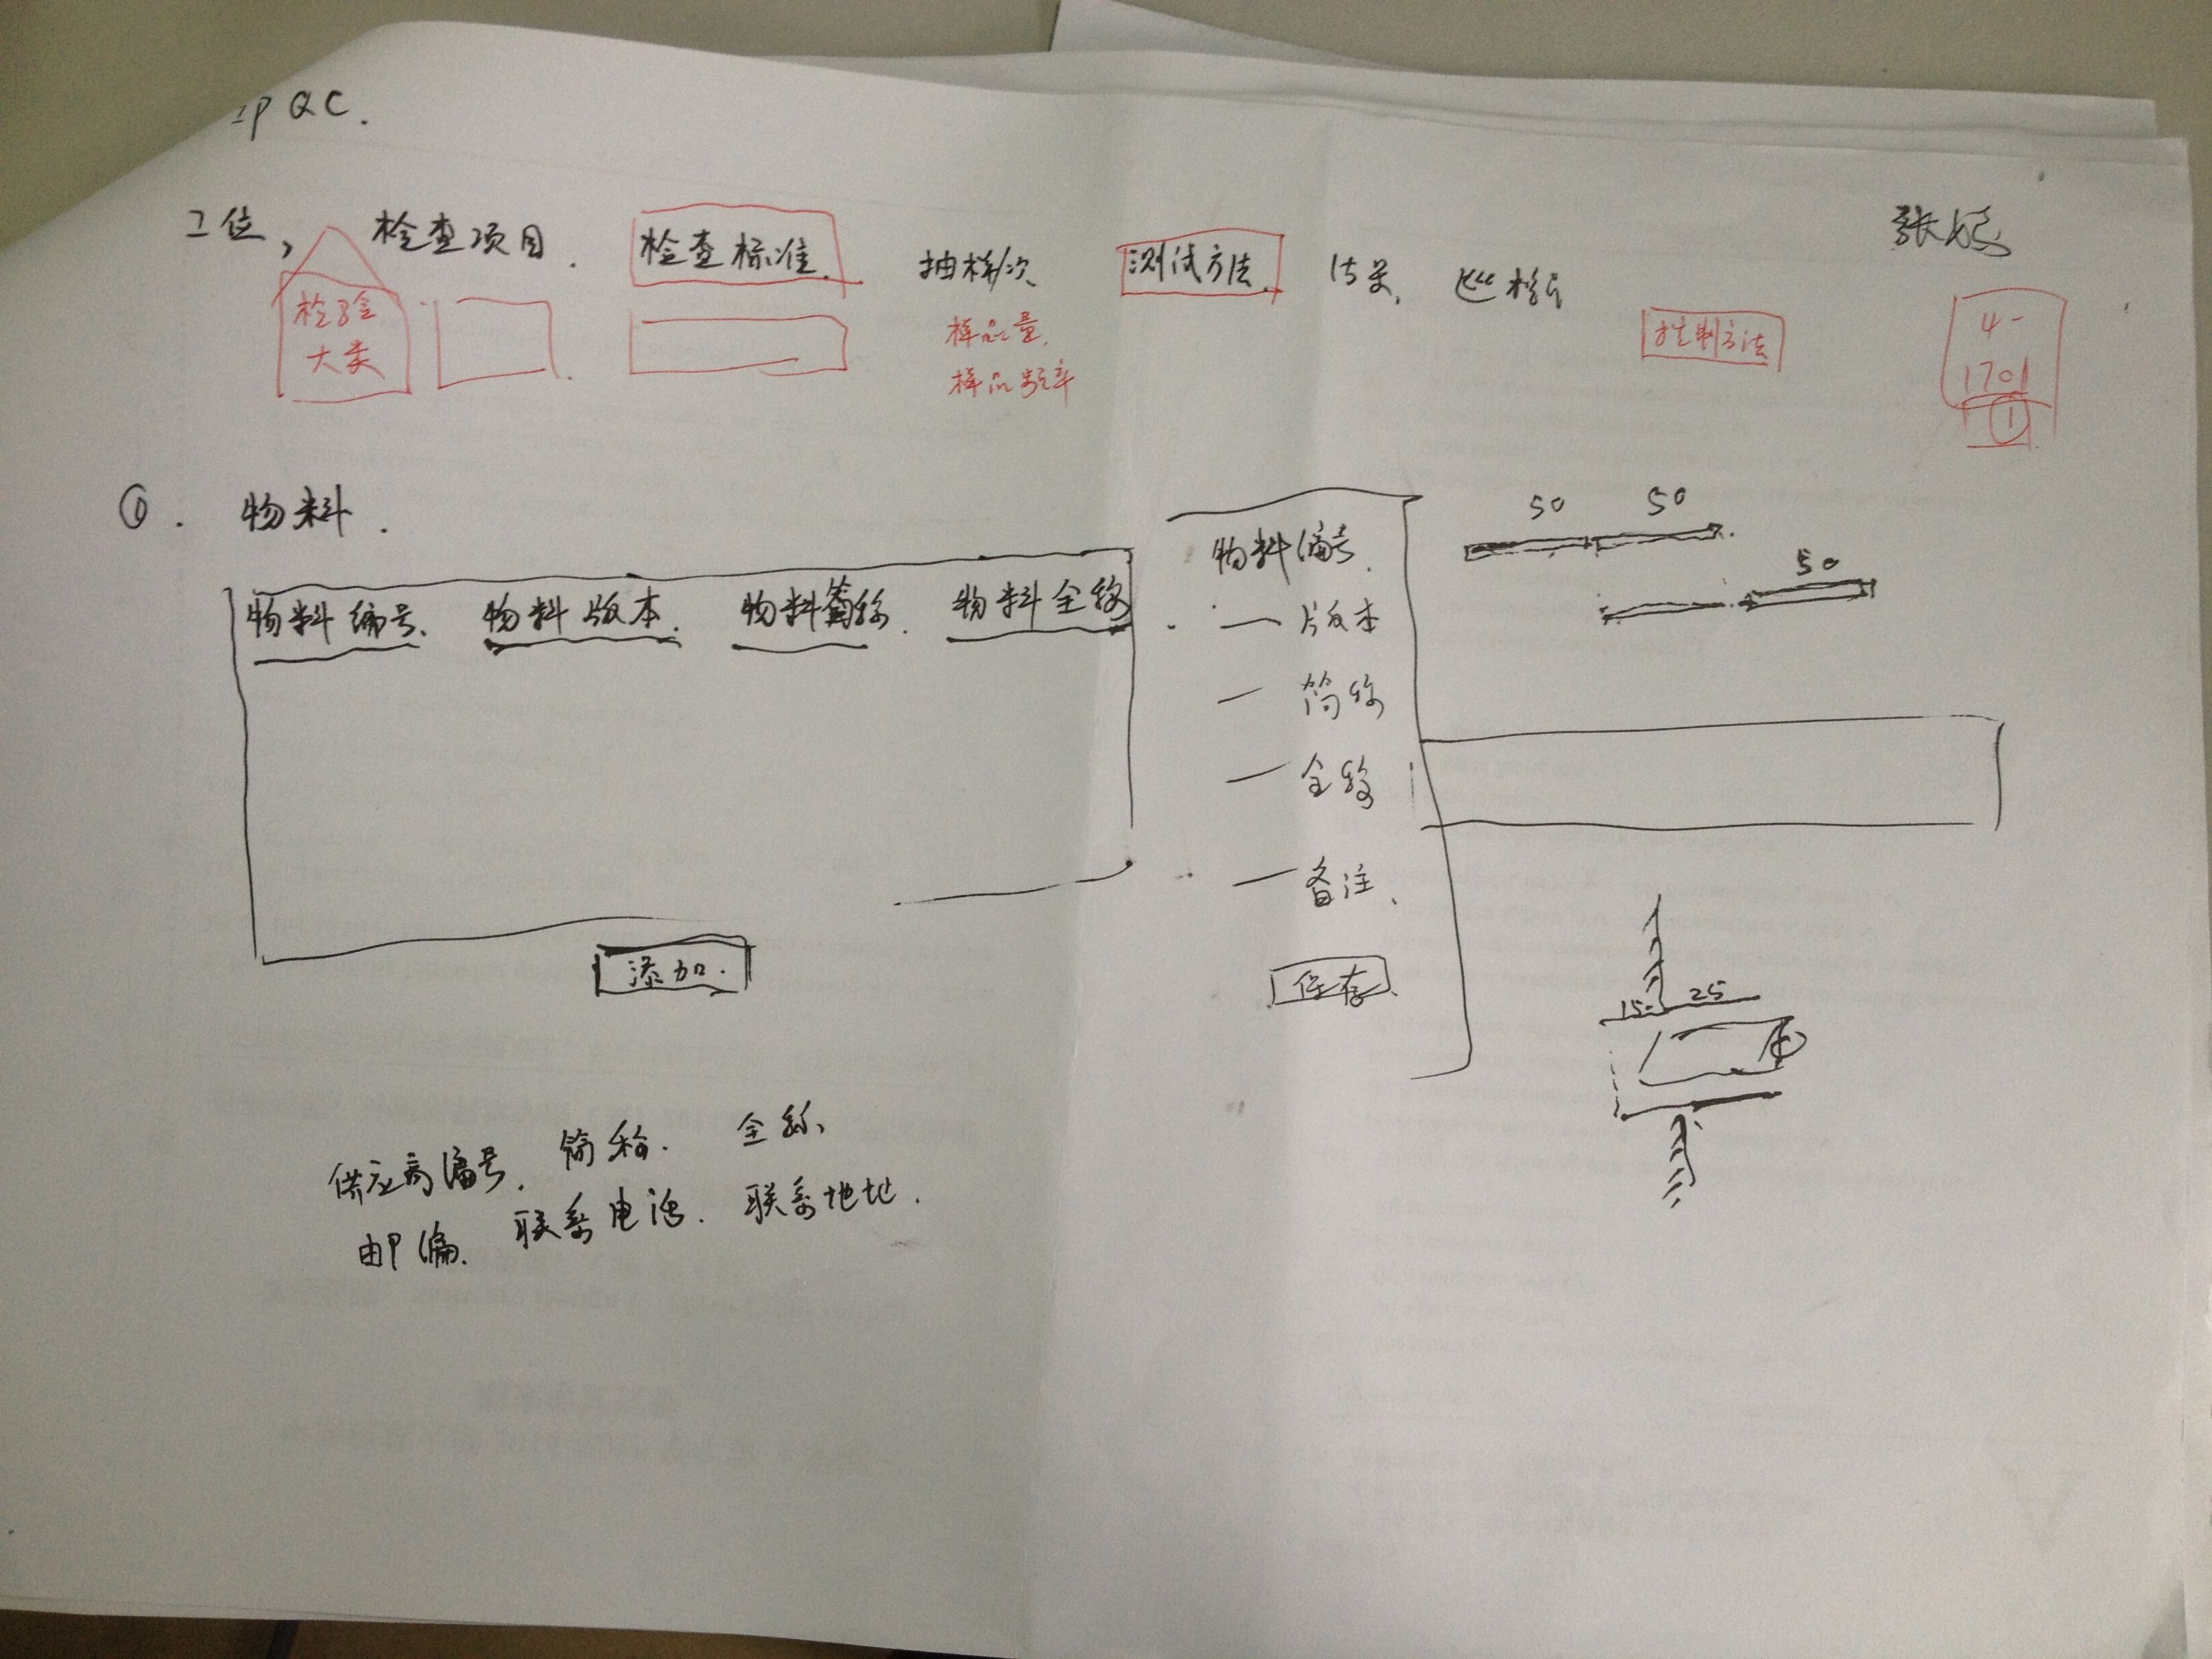 IPQC.
工位, 检查项目. 检查标准. 抽样/次 测试方法. 结果. 巡检
检验
大类
样品量.
样品频率
控制方法
4-
1701
1
①. 物料.
物料编号. 物料版本. 物料简称. 物料全称
添加.
物料编号.
— 版本
— 简称
— 全称
— 备注.
保存
50 50
50
15 25
供应商编号. 简称. 全称
邮编. 联系电话. 联系地址.